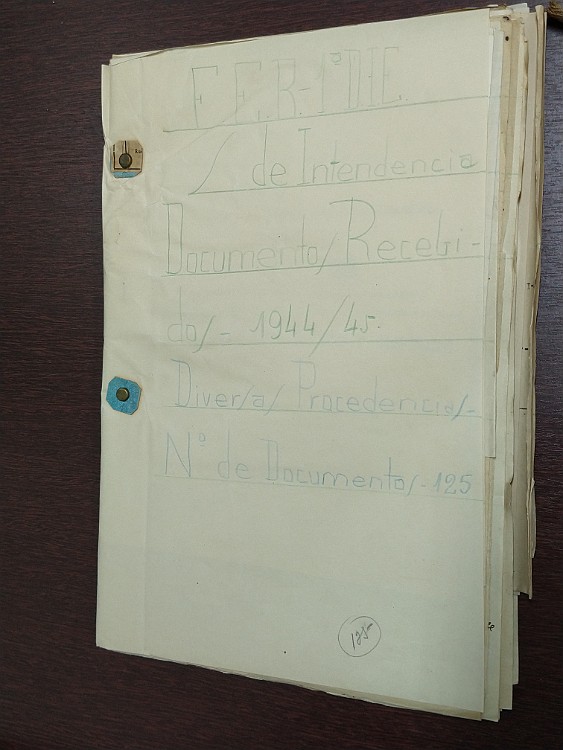 F.E.B.-1ª DIE
S de Intendencia
Documentos Recebi-
dos - 1944/45.
Diversas Procedencias-
Nº de Documentos - 125
125